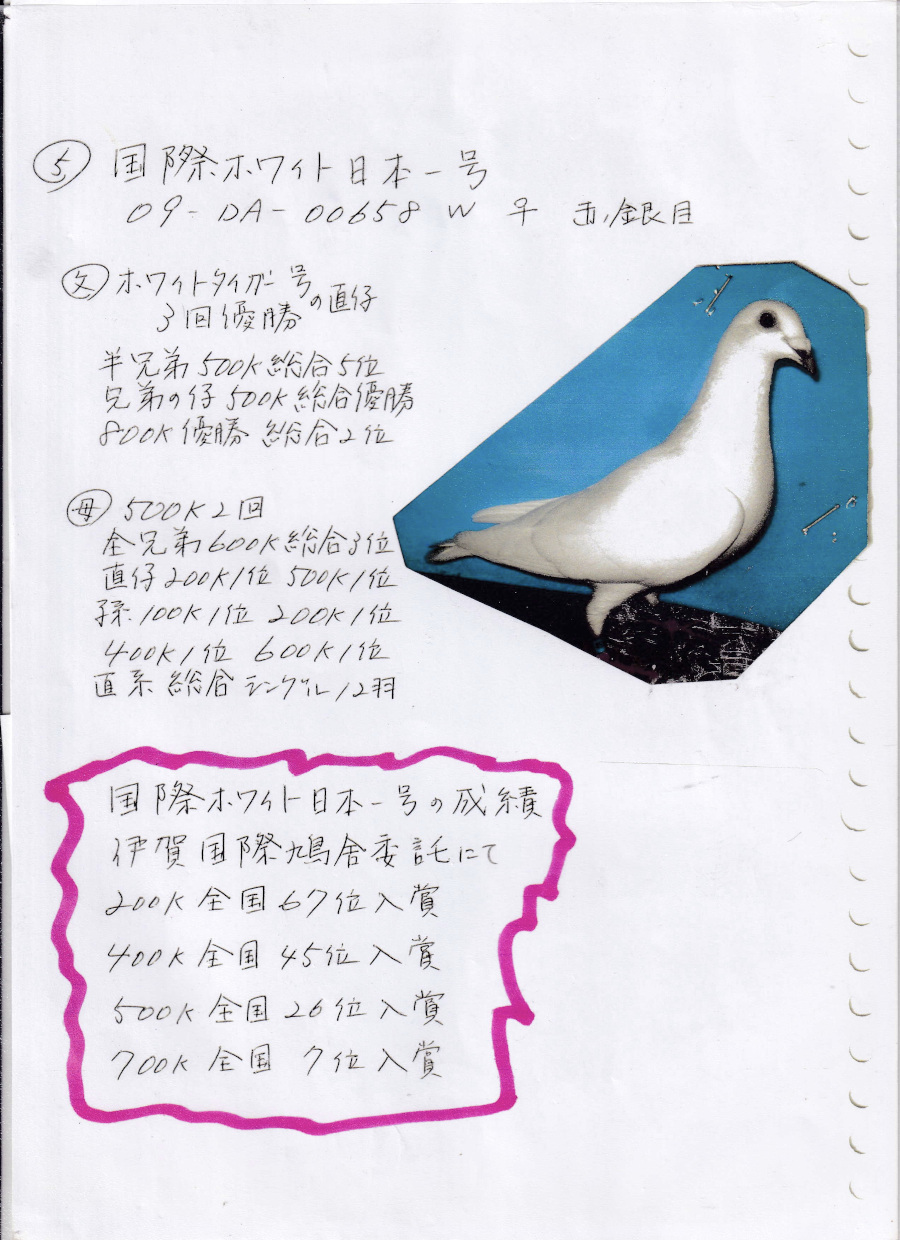 ⑤ 国際ホワイト日本一号
09-DA-00658 W ♀ 赤銀目
父 ホワイトタイガー号の直仔
3回優勝
半兄弟500K総合5位
兄弟の仔500K総合優勝
800K優勝 総合2位
母 500K2回
全兄弟600K総合3位
直仔200K1位 500K1位
孫100K1位 200K1位
400K1位 600K1位
直系総合シングル12羽
国際ホワイト日本一号の成績
伊賀国際鳩舎委託にて
200K 全国67位入賞
400K 全国45位入賞
500K 全国26位入賞
700K 全国 7位入賞